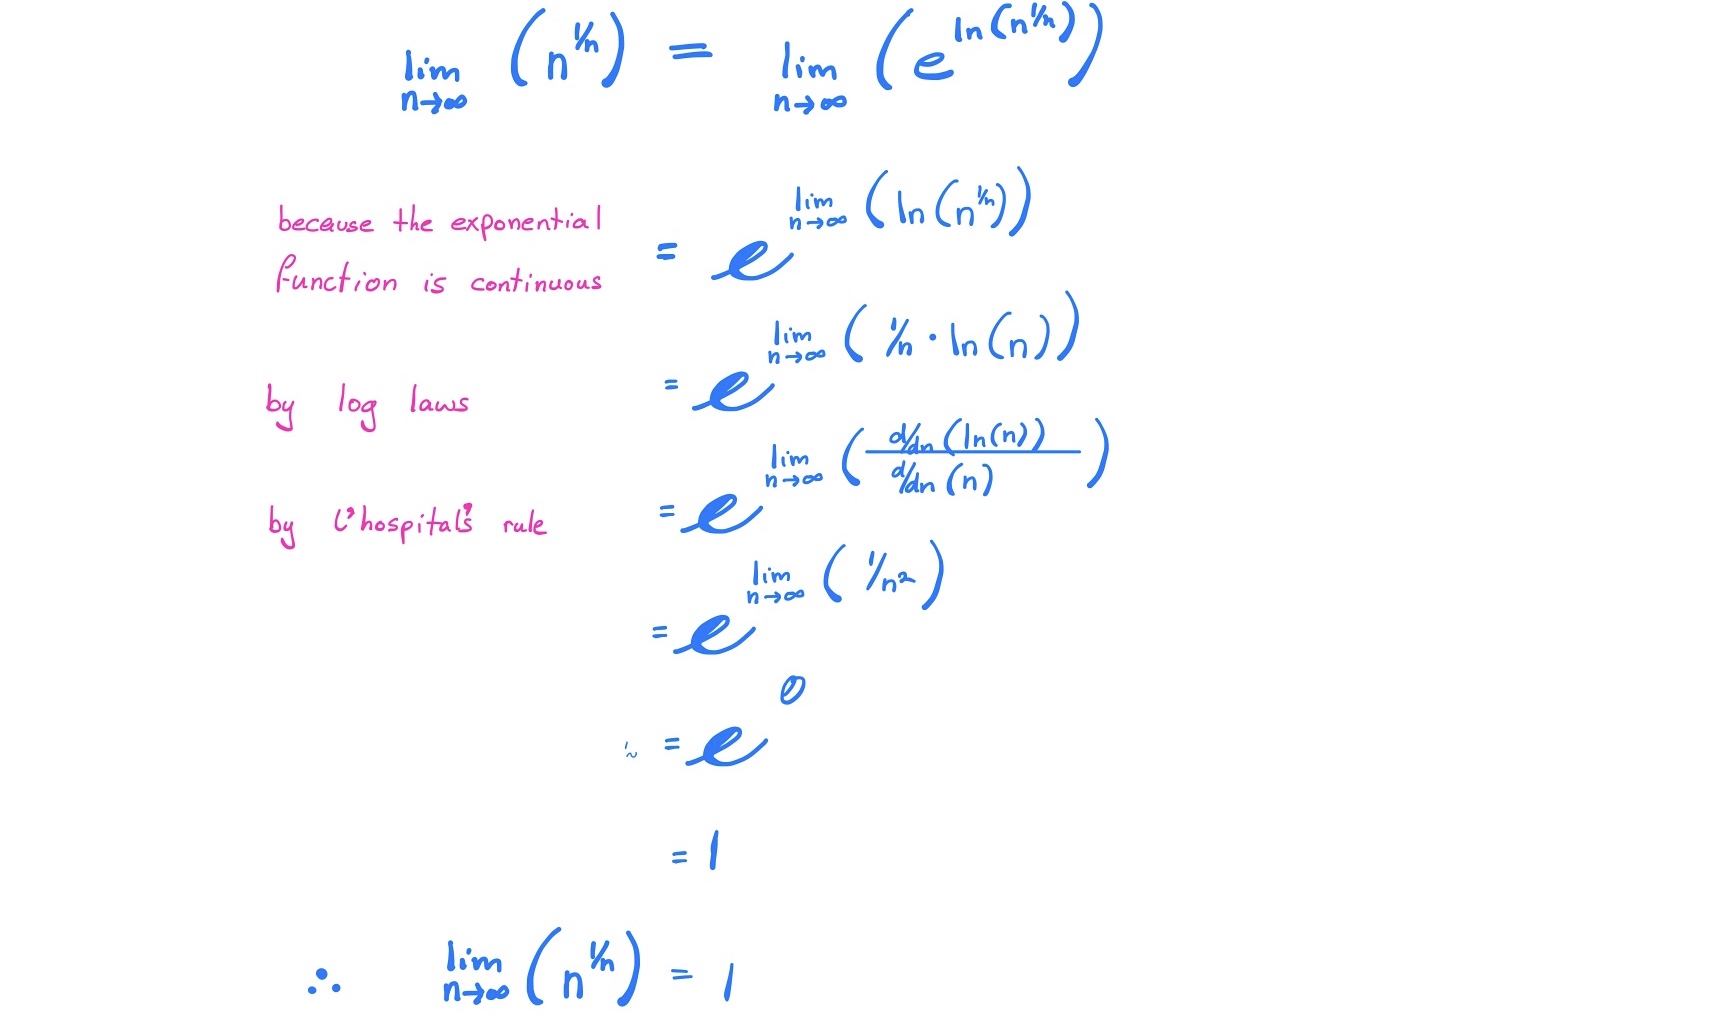 lim n→∞ (n^{1/n}) = lim n→∞ (e^{ln(n^{1/n})})
because the exponential
function is continuous
= e^{lim n→∞ (ln(n^{1/n}))}
by log laws
= e^{lim n→∞ (1/n · ln(n))}
by L'hospital's rule
= e^{lim n→∞ (d/dn (ln(n)) / d/dn (n))}
= e^{lim n→∞ (1/n²)}
= e^0
= 1
∴ lim n→∞ (n^{1/n}) = 1